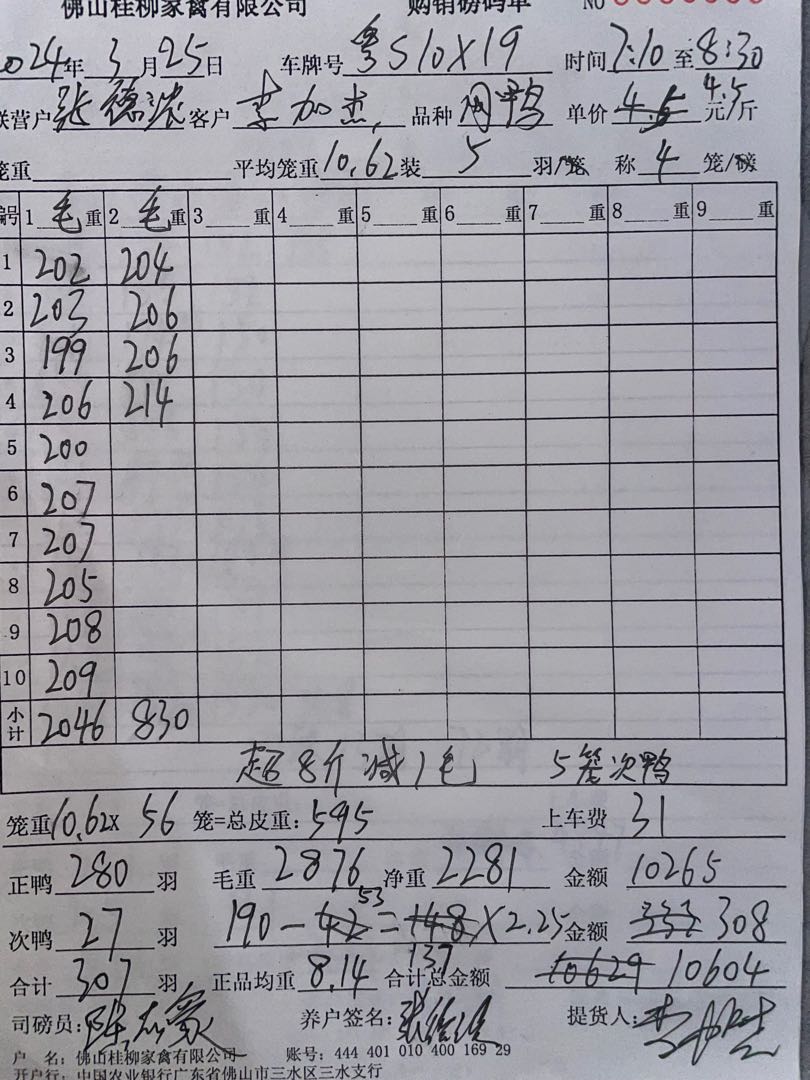 佛山桂柳家禽有限公司 购销磅码单 NO
2024年 3月25日 车牌号 粤S10X19 时间 7:10 至 8:30
联营户 张德洪 客户 李加杰 品种 肉鸭 单价 4.5 4.5 元/斤
笼重 平均笼重 10.62 装 5 羽/笼 称 4 笼/磅
编号 1 毛 重 2 毛 重 3 重 4 重 5 重 6 重 7 重 8 重 9 重
1 202 204
2 203 206
3 199 206
4 206 214
5 200
6 207
7 207
8 205
9 208
10 209
小计 2046 830
超8斤减1毛 5笼次鸭
笼重 10.62X 56 笼=总皮重: 595 上车费 31
正鸭 280 羽 毛重 2876 净重 2281 金额 10265
次鸭 27 羽 190-42 53=148 137 X2.25 金额 308
合计 307 羽 正品均重 8.14 合计总金额 10629 10604
司磅员: 养户签名: 提货人:
户 名: 佛山桂柳家禽有限公司 账号: 444 401 010 400 169 29
开户行: 中国农业银行广东省佛山市三水区三水支行